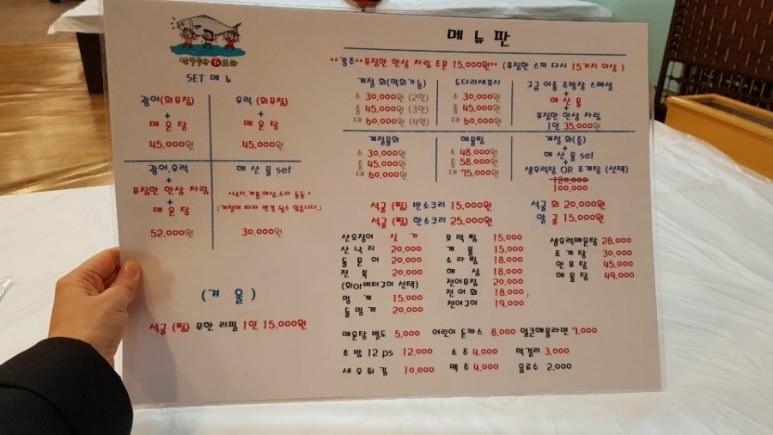 SET 메뉴
광어(회무침)
+
매운탕
45,000원
우럭 (회무침)
+
매운탕
45,000원
광어,우럭
+
푸짐한 한상 차림
+
매운탕
52,000원
해산물 set
30,000원
(겨울)
석굴 (찜) 무한 리필 1인 15,000원
메뉴판
**강추**푸짐한 한상 차림 주문 15,000원** (푸짐한 스끼 다시 15가지 이상)
계절 회(막회가능)
소 30,000원 (2인)
중 45,000원 (3인)
대 60,000원 (4인)
도다리세꼬시
소 30,000원
중 45,000원
대 60,000원
고급 어종 주방장 스페셜
+
해산물
+
푸짐한 한상 차림
1인 35,000원
계절물회
소 30,000원
중 45,000원
대 60,000원
해물찜
소 48,000원
중 58,000원
대 75,000원
계절 회(중)
+
해산물 set
+
생우럭탕 OR 조개탕 (선택)
120,000
100,000
석굴 (찜) 반소쿠리 15,000원
석굴 회 20,000원
석굴 (찜) 한소쿠리 25,000원
알굴 15,000원
산오징어 싯가
산낙지 20,000
돌문어 20,000
전복 20,000
멍게 15,000
돌멍게 20,000
꼬막찜 15,000
개불 15,000
소라찜 18,000
해삼 18,000
전어무침 20,000
전어회 18,000
전어구이 19,000
생우럭매운탕 28,000
조개탕 30,000
연포탕 45,000
해물탕 49,000
매운탕 별도 5,000 어린이 돈까스 8,000 얼큰해물라면 7,000
초밥 12 ps 12,000 소주 4,000 막걸리 3,000
새우튀김 10,000 맥주 4,000 음료수 2,000